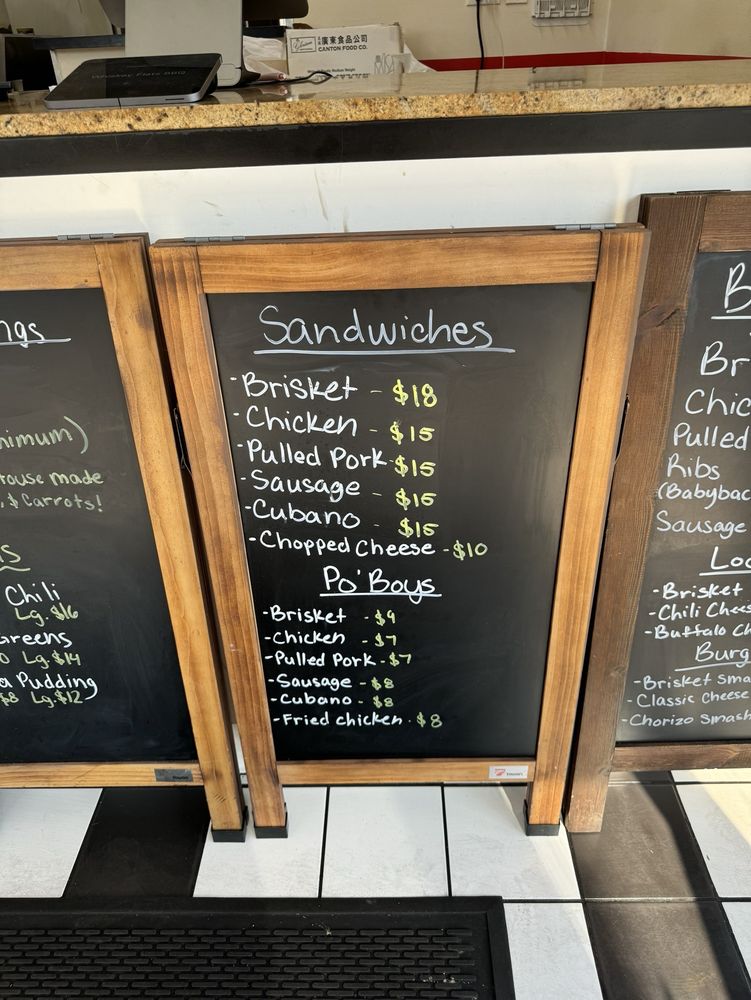 廣東食品公司
CANTON FOOD CO.
Whiskey Flats BBQ
ngs
nimum)
ouse made
, & Carrots!
s
Chili
Lg. $16
Greens
0 Lg. $14
a Pudding
$8 Lg. $12
Sandwiches
- Brisket - $18
- Chicken - $15
- Pulled Pork - $15
- Sausage - $15
- Cubano - $15
- Chopped Cheese - $10
Po'Boys
- Brisket - $9
- Chicken - $7
- Pulled Pork - $7
- Sausage - $8
- Cubano - $8
- Fried chicken - $8
B
Br
Chic
Pulled
Ribs
(Babybac
Sausage
Loa
- Brisket
- Chili Chees
- Buffalo Ch
Burg
- Brisket Sma
- Classic Cheese
- Chorizo Smash